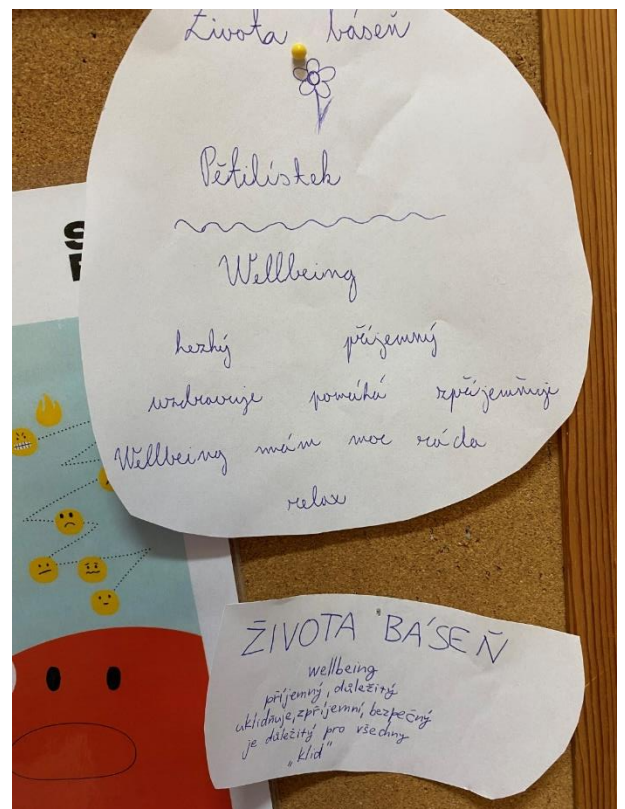 Života báseň
Pětilístek
Wellbeing
hezký příjemný
uzdravuje pomáhá zpříjemňuje
Wellbeing mám moc ráda
relax
ŽIVOTA BÁSEŇ
wellbeing
příjemný, důležitý
uklidňuje, zpříjemní, bezpečný
je důležitý pro všechny
„klid"